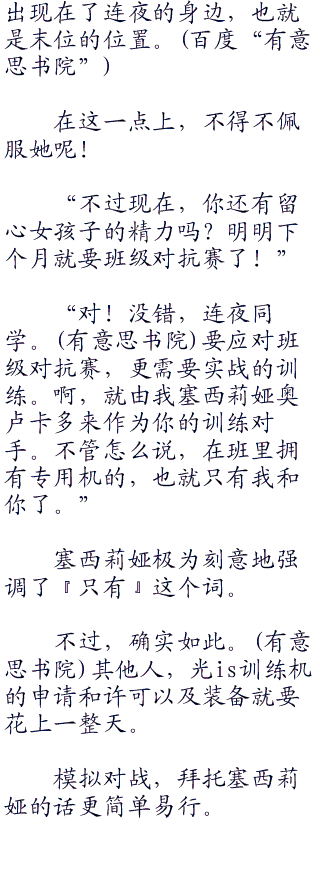 出现在了连夜的身边，也就
是末位的位置。(百度“有意
思书院”)
在这一点上，不得不佩
服她呢！
“不过现在，你还有留
心女孩子的精力吗？明明下
个月就要班级对抗赛了！”
“对！没错，连夜同
学。(有意思书院)要应对班
级对抗赛，更需要实战的训
练。啊，就由我塞西莉娅奥
卢卡多来作为你的训练对
手。不管怎么说，在班里拥
有专用机的，也就只有我和
你了。”
塞西莉娅极为刻意地强
调了『只有』这个词。
不过，确实如此。(有意
思书院)其他人，光is训练机
的申请和许可以及装备就要
花上一整天。
模拟对战，拜托塞西莉
娅的话更简单易行。